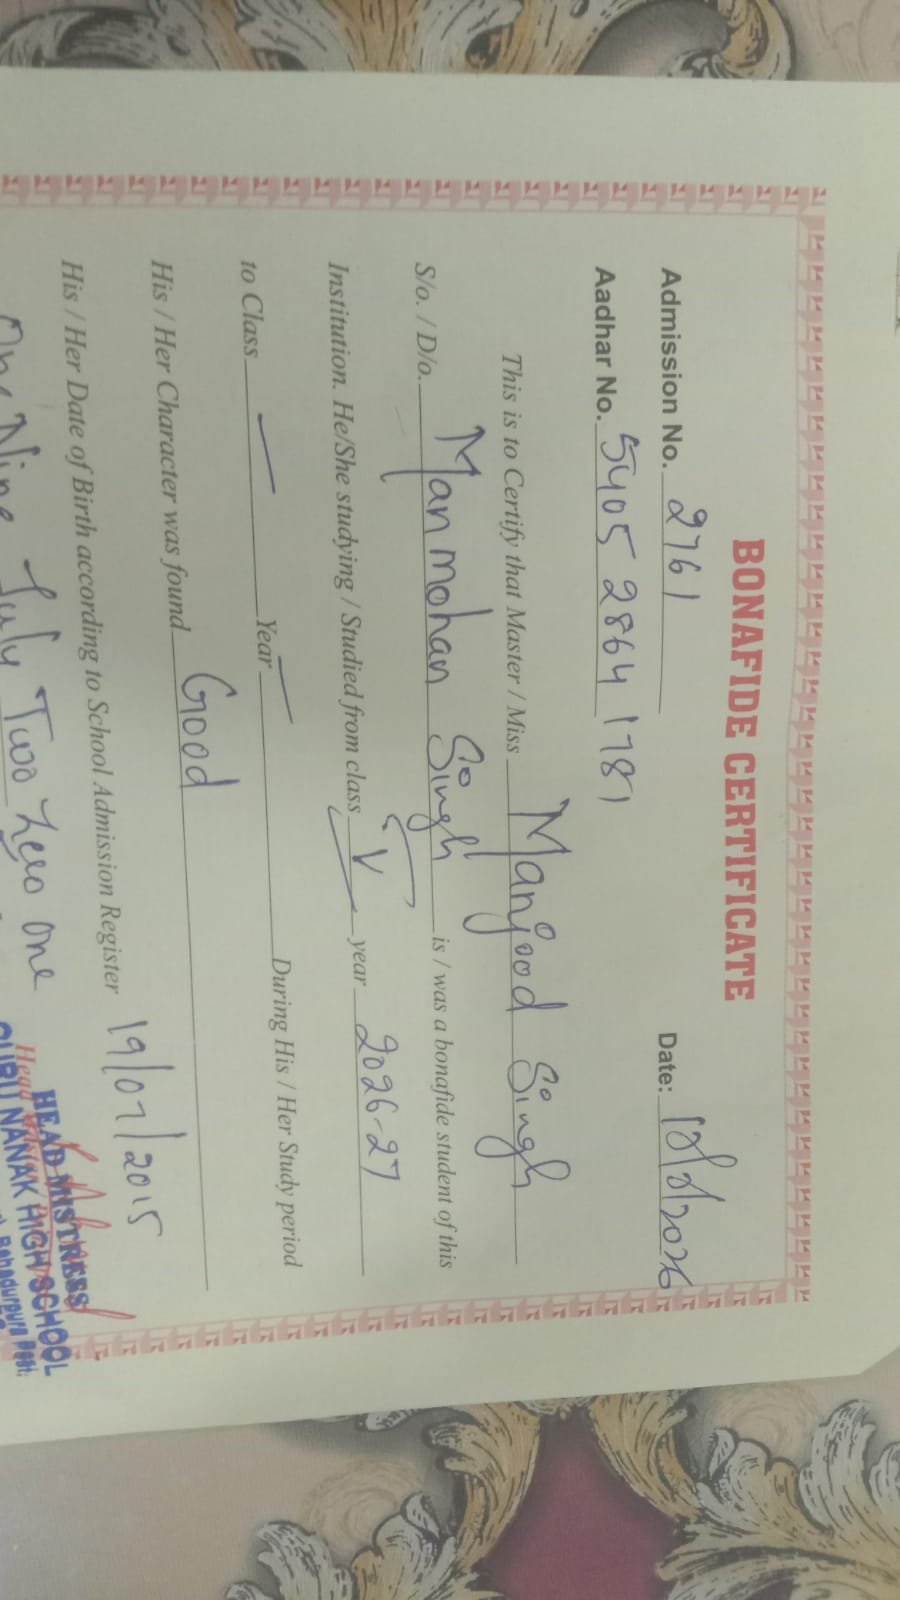 BONAFIDE CERTIFICATE
Admission No. 2761 Date:
Aadhar No. 5405 2864 1781
This is to Certify that Master / Miss Manjood Singh
S/o. / D/o. Manmohan Singh is / was a bonafide student of this
Institution. He/She studying / Studied from class V year 2026-27
to Class — Year — During His / Her Study period
His / Her Character was found Good
His / Her Date of Birth according to School Admission Register 19/07/2015
One Nine July Two Zero One
HEAD MISTRESS
GURU NANAK HIGH SCHOOL
Bahadurpura Post.